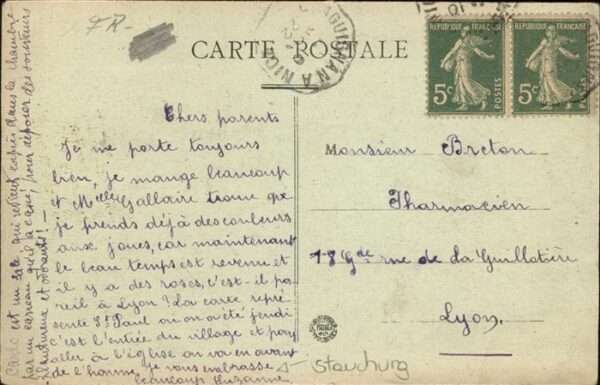 FR-
CARTE POSTALE
DRAGUIGNAN A NICE
REPUBLIQUE FRANÇAISE
5c
POSTES
REPUBLIQUE FRANÇAISE
5c
POSTES
Chers parents
Je me porte toujours
bien, je mange beaucoup
et Melle Gallaire trouve que
je prends déjà des couleurs
aux joues, car maintenant
le beau temps est revenu et
il y a des roses, c'est-il pa
reil à Lyon? La carte repré
sente St Paul où on a été jeudi
c'est l'entrée du village et pour
aller à l'église on va en avant
de l'homme. Je vous embrasse
beaucoup Suzanne
Monsieur Breton
Pharmacien
78 Gde rue de la Guillotière
Lyon
Stauchurg
est un sale qui
dans la chambre
carreau pour déposer des